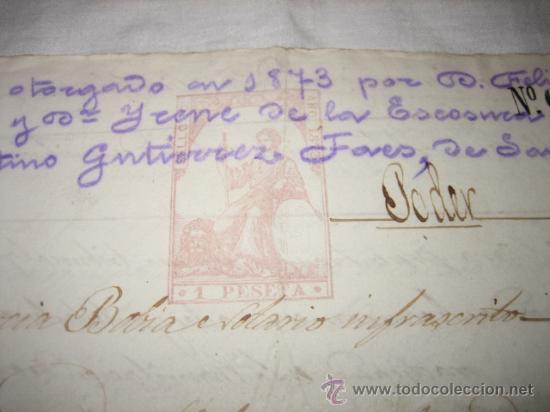 otorgado en 1873 por D. Feli
Nº
y Dª Yrene de la Escosura
tino Gutierrez Faes, de Sa
SELLO
Poder
1 PESETA
cia Bobia Notario infrascrito
todocoleccion
www.todocoleccion.net